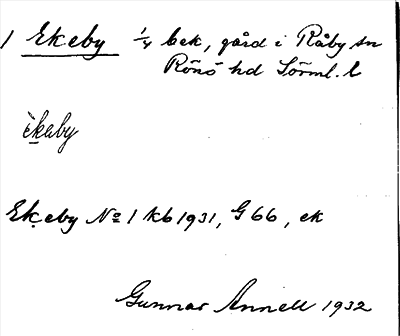 1 Ekeby 1/4 bek, gård i Råby sn
Rönö hd Sörml. l
èkaby
Ekeby No 1 kb 1931, G 66, ek
Gunnar Annell 1932